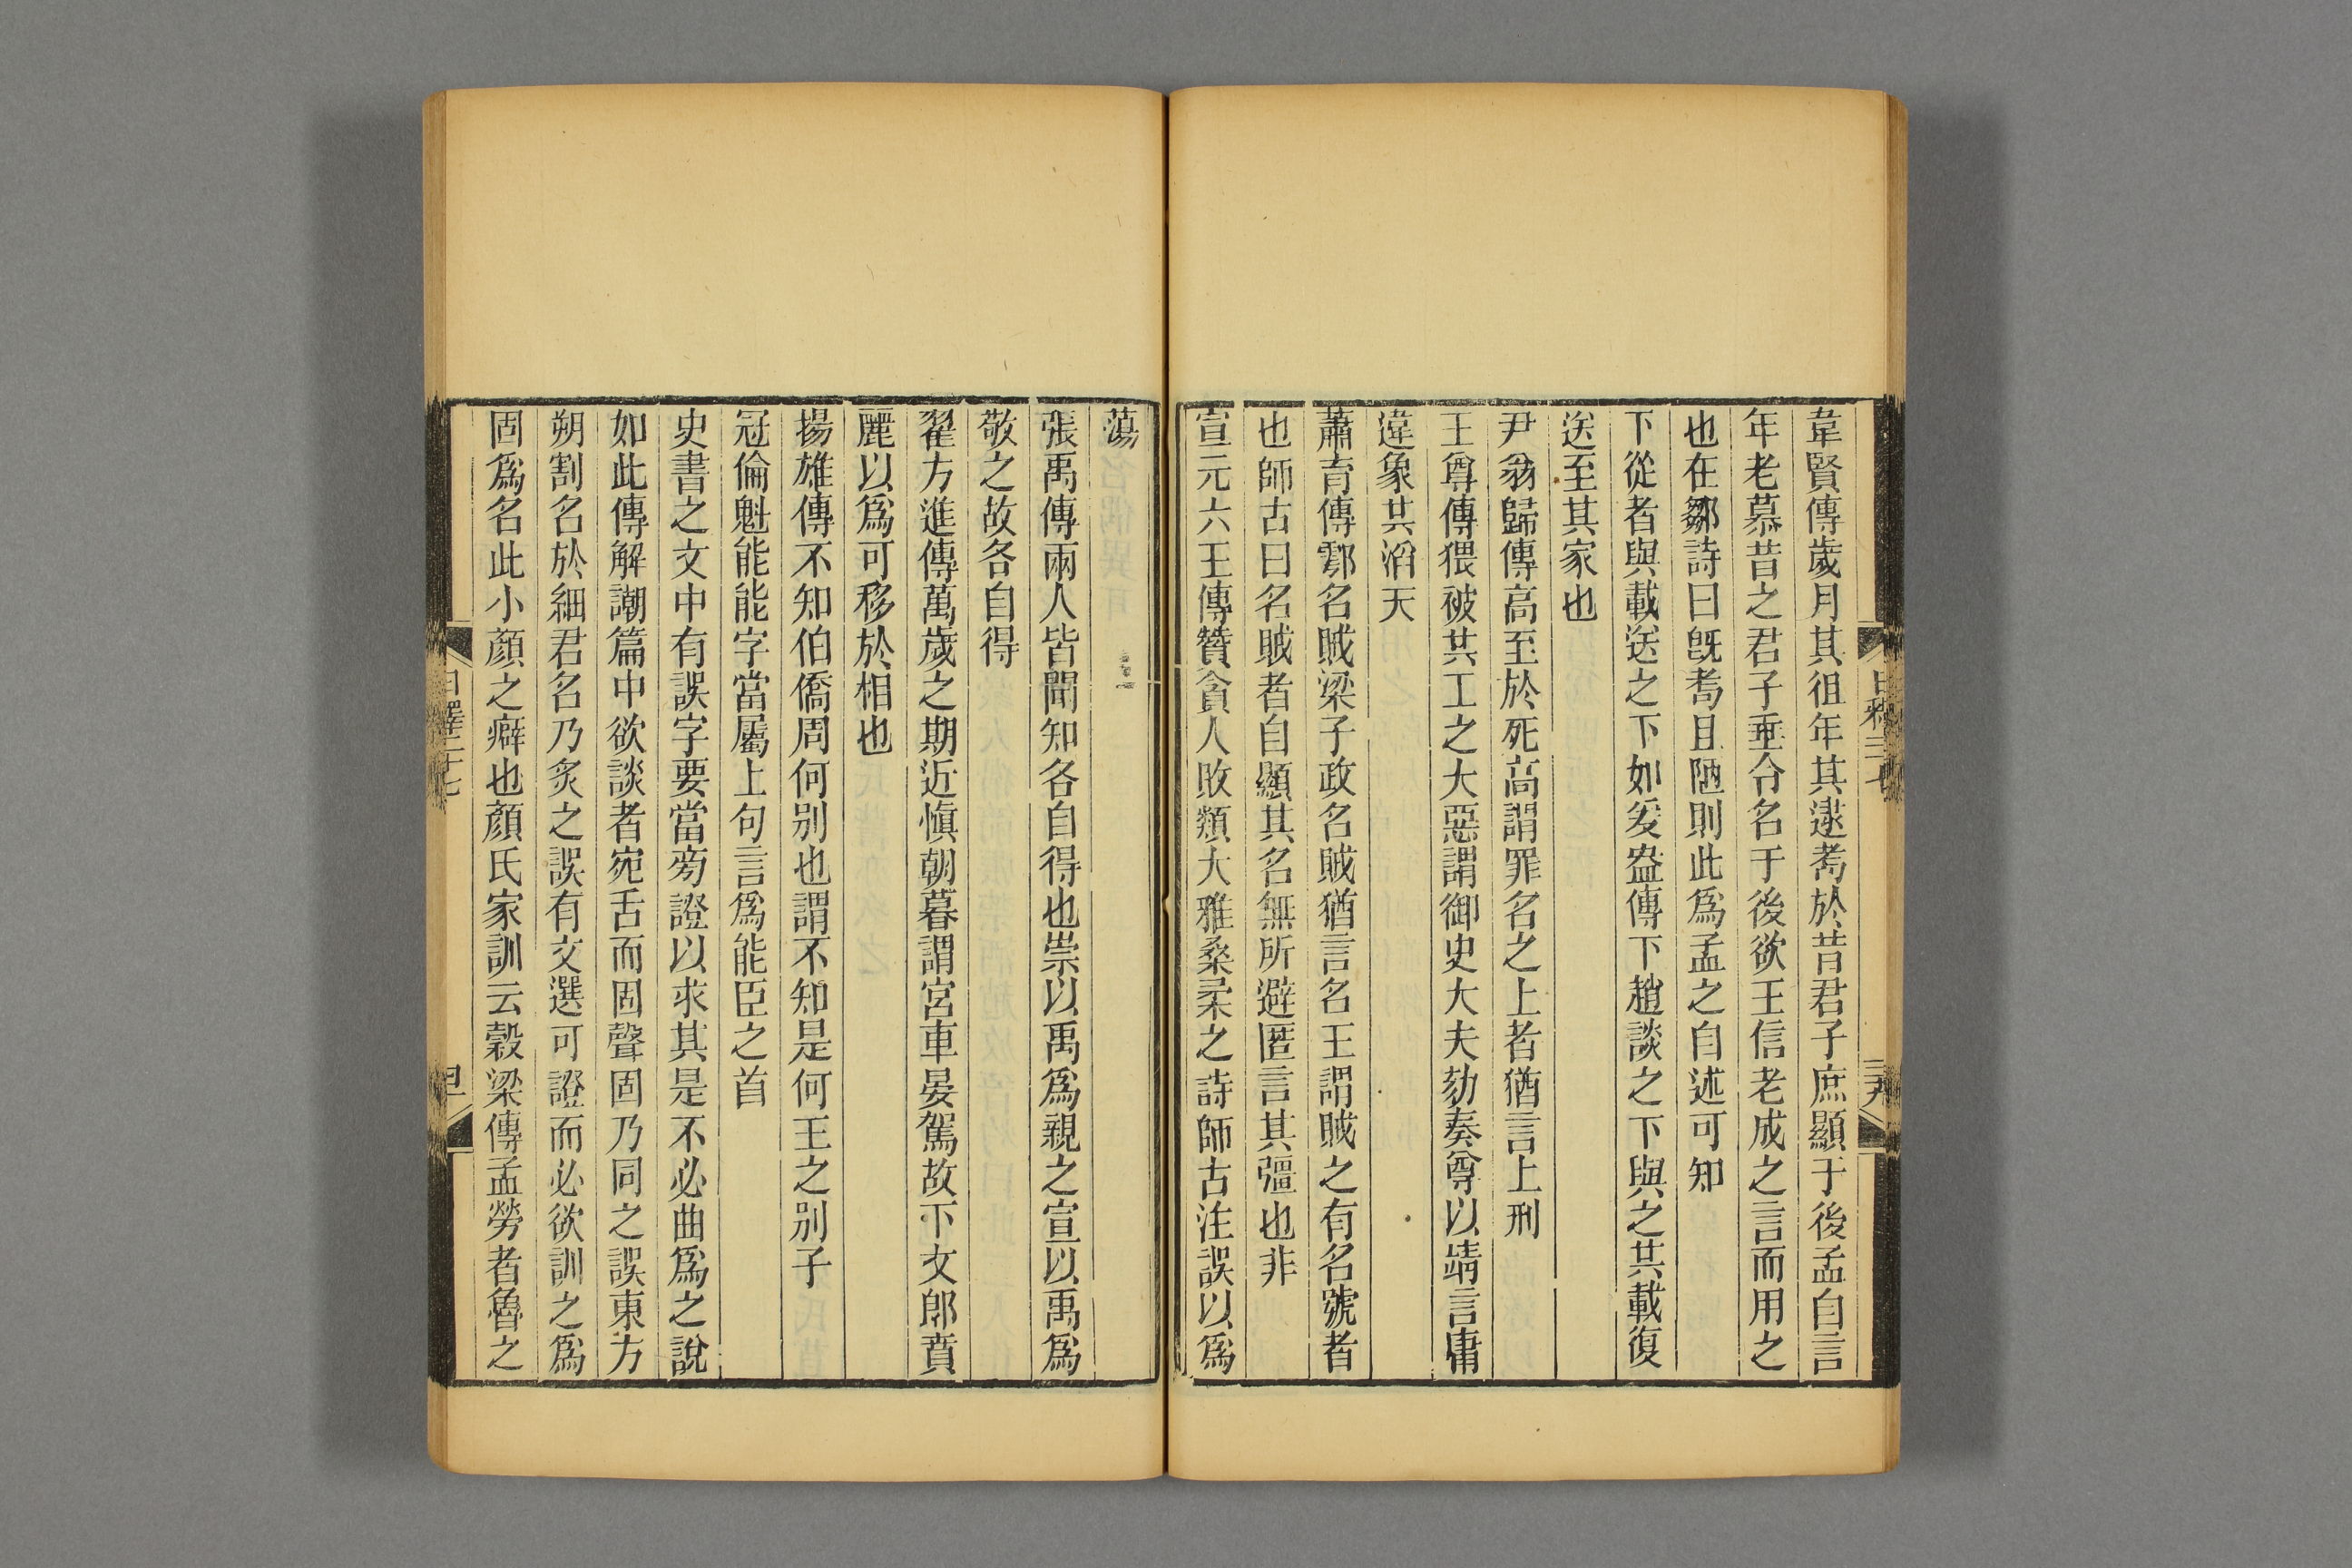 韋賢傳歲月其徂年其逮耇於昔君子庶顯于後孟自言
年老慕昔之君子垂令名于後欲王信老成之言而用之
也在鄒詩曰旣耇且陋則此爲孟之自述可知
下從者與載送之下如爰盎傳下趙談之下與之共載復
送至其家也
尹翁歸傳高至於死高謂罪名之上者猶言上刑
王尊傳猥被共工之大惡謂御史大夫劾奏尊以靖言庸
違象共滔天
蕭育傳鄠名賊梁子政名賊猶言名王謂賊之有名號者
也師古曰名賊者自顯其名無所避匿言其彊也非
宣元六王傳贊貪人敗類大雅桑柔之詩師古注誤以爲
蕩
張禹傳兩人皆聞知各自得也崇以禹爲親之宣以禹爲
敬之故各自得
翟方進傳萬歲之期近愼朝暮謂宮車晏駕故下文郎賁
麗以爲可移於相也
揚雄傳不知伯僑周何别也謂不知是何王之别子
冠倫魁能能字當屬上句言爲能臣之首
史書之文中有誤字要當旁證以求其是不必曲爲之說
如此傳解謿篇中欲談者宛舌而固聲固乃同之誤東方
朔割名於細君名乃炙之誤有文選可證而必欲訓之爲
固爲名此小顏之癖也顏氏家訓云穀梁傳孟勞者魯之